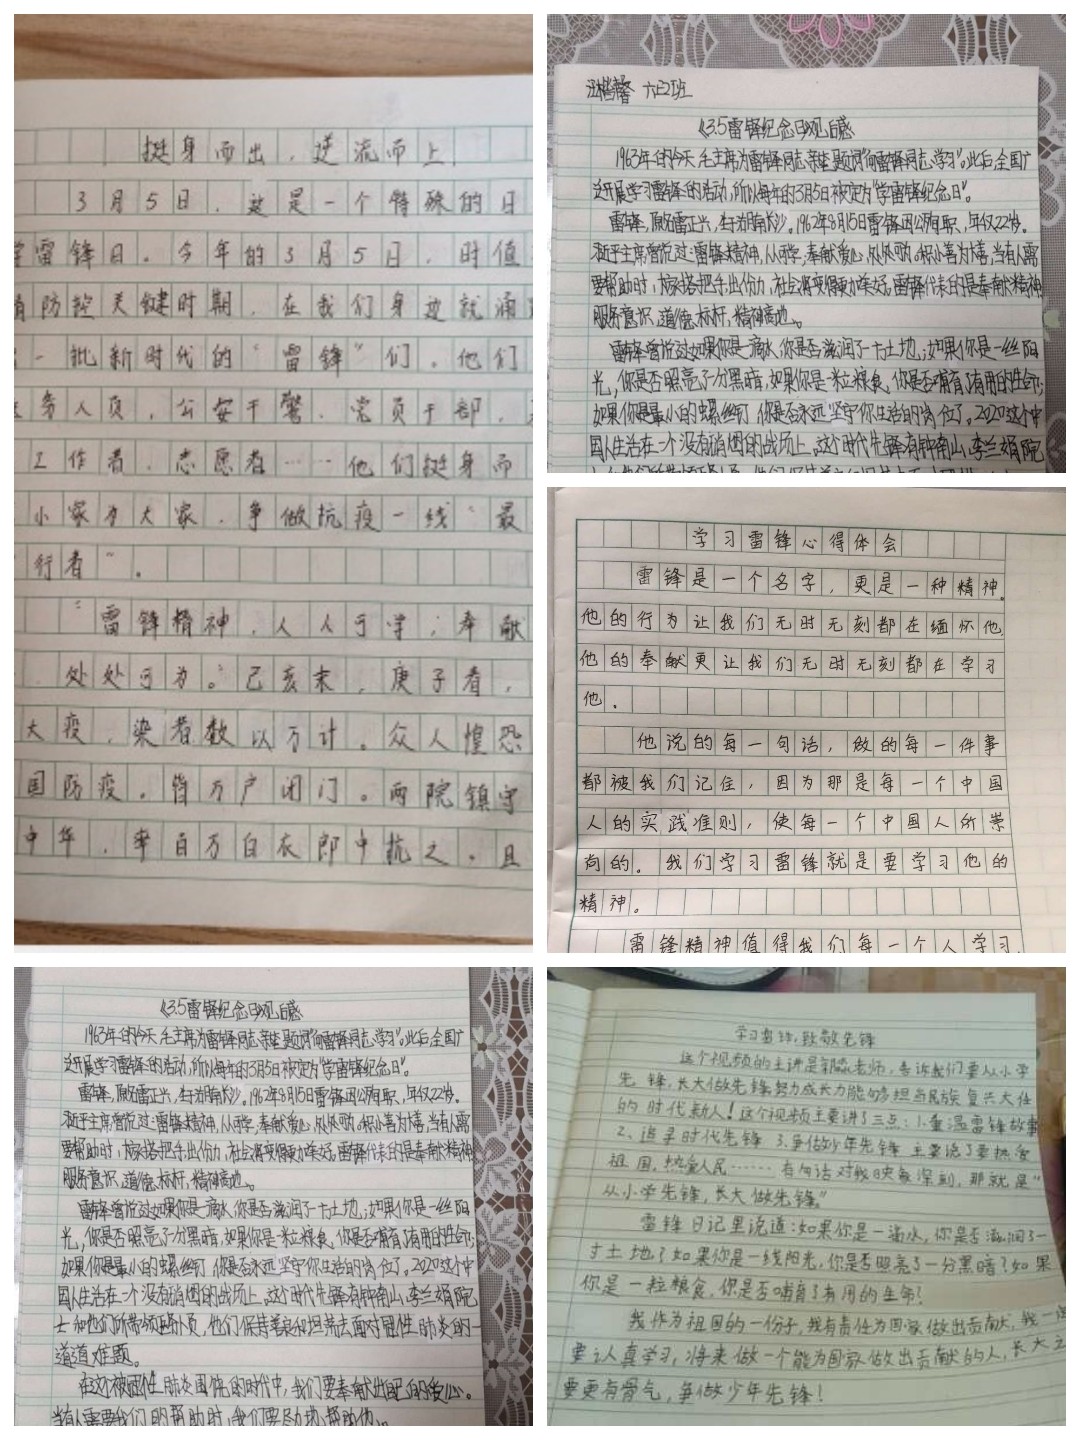 挺身而出，逆流而上
3月5日，这是一个特殊的日
学雷锋日。今年的3月5日，时值
防控关键时期，在我们身边就涌
一批新时代的“雷锋”们。他们
务人员，公安干警，党员干部，
工作者，志愿者……他们挺身而
小家为大家，争做抗疫一线“最
行者”。
“雷锋精神，人人可学；奉献
处处可为。”己亥末，庚子春，
大疫，染者数以万计。众人惶恐
国防疫。皆万户闭门。两院镇守
中华，率百万白衣郎中抗之。且
六2班
《3.5雷锋纪念日》观后感
1963年的今天毛主席为雷锋同志亲笔题词“向雷锋同志学习”。此后全国广
泛开展学习雷锋的活动，所以每年的3月5日被定为“学雷锋纪念日”。
雷锋，原名雷正兴，生于湖南长沙。1962年8月15日雷锋因公殉职，年仅22岁。
习近平主席曾说过：雷锋精神，人人可学；奉献爱心，处处可为。积小善为大善，当有人需
要帮助时，大家搭把手出份力，社会将变得更加美好。雷锋代表的是奉献精神
服务意识，道德标杆，精神高地。
雷锋曾说过如果你是一滴水，你是否滋润了一寸土地；如果你是一丝阳
光，你是否照亮了一分黑暗，如果你是一粒粮食，你是否哺育了有用的生命；
如果你是最小的螺丝钉你是否永远坚守你生活的岗位了。2020这个中
国人生活在一个没有硝烟的战场上，这个时代先锋有钟南山，李兰娟院
学习雷锋心得体会
雷锋是一个名字，更是一种精神。
他的行为让我们无时无刻都在缅怀他，
他的奉献更让我们无时无刻都在学习
他。
他说的每一句话，做的每一件事
都被我们记住，因为那是每一个中国
人的实践准则，使每一个中国人所崇
尚的。我们学习雷锋就是要学习他的
精神。
雷锋精神值得我们每一个人学习，
《3.5雷锋纪念日》观后感
1963年的今天毛主席为雷锋同志亲笔题词“向雷锋同志学习”。此后全国广
泛开展学习雷锋的活动，所以每年的3月5日被定为“学雷锋纪念日”。
雷锋，原名雷正兴，生于湖南长沙。1962年8月15日雷锋因公殉职，年仅22岁。
习近平主席曾说过：雷锋精神，人人可学；奉献爱心，处处可为。积小善为大善，当有人需
要帮助时，大家搭把手出份力，社会将变得更加美好。雷锋代表的是奉献精神
服务意识，道德标杆，精神高地。
雷锋曾说过如果你是一滴水，你是否滋润了一寸土地；如果你是一丝阳
光，你是否照亮了一分黑暗，如果你是一粒粮食，你是否哺育了有用的生命；
如果你是最小的螺丝钉你是否永远坚守你生活的岗位了。2020这个中
国人生活在一个没有硝烟的战场上，这个时代先锋有钟南山，李兰娟院
士和他们所带领医护人员，他们保持善良和坦荡去面对冠性肺炎的一
道道难题。
在这个被冠性肺炎围住的时代中，我们要奉献出自己的爱心。
当有人需要我们的帮助时，我们要尽力地帮助他。
学习雷锋，致敬先锋
这个视频的主讲是老师，告诉我们要从小学
先锋，长大做先锋，努力成长为能够担当民族复兴大任
的时代新人！这个视频主要讲了三点：1.重温雷锋故事
2、追寻时代先锋 3.争做少年先锋 主要说了要热爱
祖国，热爱人民……有句话对我映象深刻，那就是“
从小学先锋，长大做先锋。”
雷锋日记里说道：如果你是一滴水，你是否滋润了一
寸土地？如果你是一线阳光，你是否照亮了一分黑暗？如果
你是一粒粮食，你是否哺育了有用的生命？
我作为祖国的一份子，我有责任为国家做出贡献，我一
要认真学习，将来做一个能为国家做出贡献的人，长大之
要更有骨气，争做少年先锋！